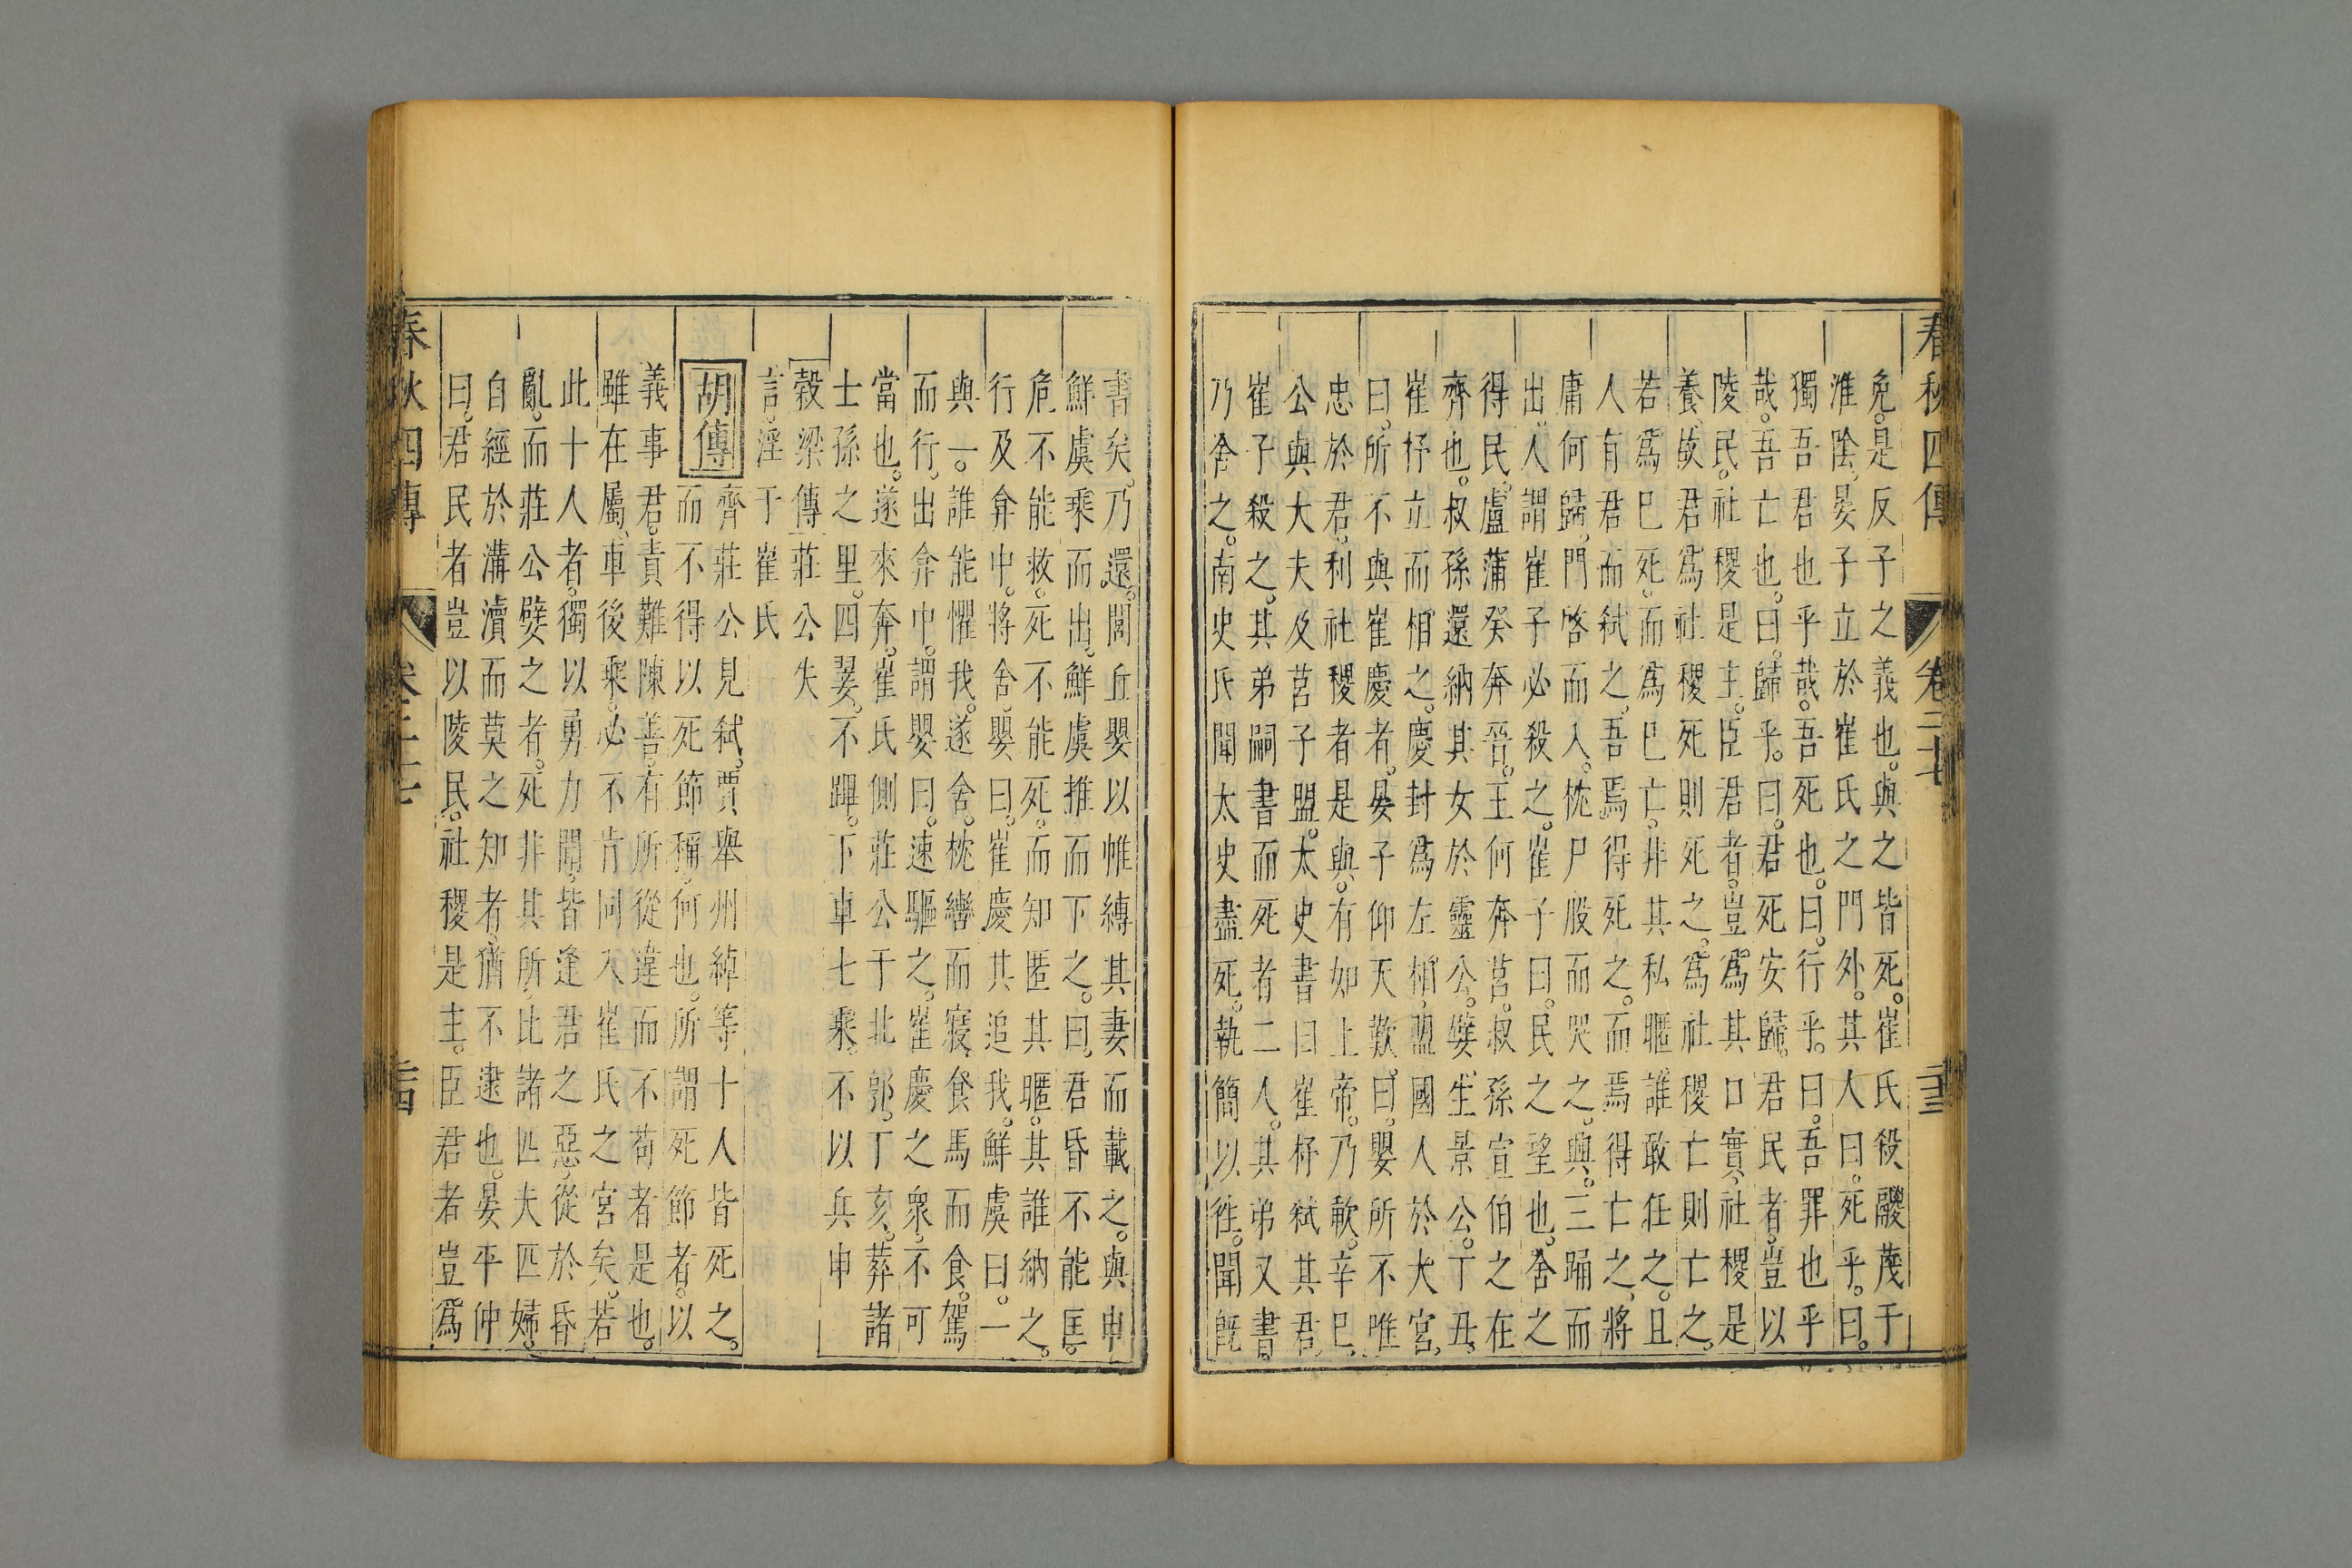 春秋四傳 卷二十七 二十三
免。是反子之義也。與之皆死。崔氏殺鬷蔑于
淮陰。晏子立於崔氏之門外。其人曰。死乎。曰。
獨吾君也乎哉。吾死也。曰。行乎。曰。吾罪也乎
哉。吾亡也。曰。歸乎。曰。君死安歸。君民者。豈以
陵民。社稷是主。臣君者。豈爲其口實、社稷是
養、故君爲社稷死則死之。爲社稷亡則亡之。
若爲已死。而爲已亡。非其私暱誰敢任之。且
人有君而弒之。吾焉得死之。而焉得亡之、將
庸何歸、門啓而入。枕尸股而哭之。興。三踊而
出。人謂崔子必殺之。崔子曰。民之望也。舍之
得民。盧蒲癸奔晉。王何奔莒。叔孫宣伯之在
齊也。叔孫還納其女於靈公。嬖生景公。丁丑。
崔杼立而相之。慶封爲左相。盟國人於大宮。
曰。所不與崔慶者。晏子仰天歎曰。嬰所不唯
忠於君。利社稷者是與、有如上帝。乃歃。辛巳。
公與大夫及莒子盟。太史書曰崔杼弒其君。
崔子殺之。其弟嗣書而死者二人。其弟又書。
乃舍之。南史氏聞太史盡死。執簡以徃。聞旣
書矣。乃還。閭丘嬰以帷縛其妻而載之。與申
鮮虞乘而出。鮮虞推而下之。曰。君昏不能匡。
危不能救。死不能死。而知匿其暱。其誰納之。
行及弇中。將舍。嬰曰。崔慶其追我。鮮虞曰。一
與一。誰能懼我。遂舍。枕轡而寢。食馬而食。駕
而行。出弇中。謂嬰曰。速驅之。崔慶之衆。不可
當也。遂來奔。崔氏側莊公于北郭。丁亥。葬諸
士孫之里。四翣。不蹕。下車七乘。不以兵甲
穀梁傳 莊公失
言。淫于崔氏
胡傳 齊莊公見弒。賈舉州綽等十人皆死之。
而不得以死節稱。何也。所謂死節者。以
義事君。責難陳善。有所從違而不苟者是也。
雖在屬車後乘。必不肯同入崔氏之宮矣。若
此十人者。獨以勇力聞。皆逢君之惡。從於昏
亂。而莊公嬖之者。死非其所。比諸匹夫匹婦。
自經於溝瀆而莫之知者。猶不逮也。晏平仲
曰。君民者豈以陵民。社稷是主。臣君者豈爲
春秋四傳 卷二十七 二十四